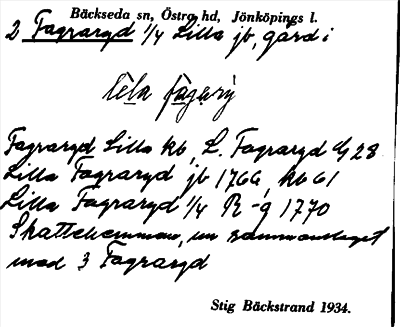 Bäckseda sn, Östra hd, Jönköpings l.
2 Fagraryd 1/4 Lilla jb, gård i
lila fagarÿ
Fagraryd Lilla kb, L. Fagraryd Gj 28
Lilla Fagraryd jb 1766, kb 61
Lilla Fagraryd 1/4 R-g 1770
Skattehemman, nu sammanslaget
med 3 Fagraryd
Stig Bäckstrand 1934.